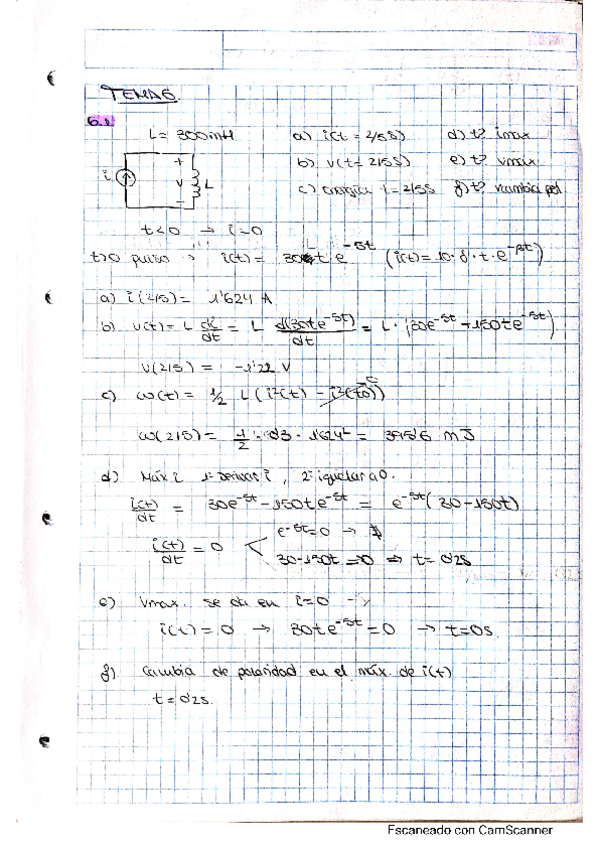 TEMA 6.
6.1
L = 300mH a) i(t = 2/5 s) d) t? imax
b) v(t = 2/5 s) e) t? vmax
i v L + - c) energía t = 2/5 s f) t? vcambia pol
t<0 → i=0
t>0 pulso → i(t) = 30 t e^-5t (i(t) = 10·8·t·e^-5t)
a) i(2/5) = 1'624 A
b) v(t) = L di/dt = L d(30te^-5t)/dt = L · (30e^-5t - 150te^-5t)
v(2/5) = -1'22 V
c) ω(t) = 1/2 L (i²(t) - i²(t0)) 0
ω(2/5) = 1/2 · 0'3 · 1'624² = 395'6 mJ
d) Máx i 1º derivar i, 2º igualar a 0.
i(t)/dt = 30e^-5t - 150te^-5t = e^-5t (30 - 150t)
i(t)/dt = 0 < e^-5t = 0 → ∄
30 - 150t = 0 ⇒ t = 0'2s
e) Vmax. se da en i=0 →
i(t) = 0 → 30te^-5t = 0 → t=0s.
f) Cambia de polaridad en el máx. de i(t)
t = 0'2s.
Escaneado con CamScanner